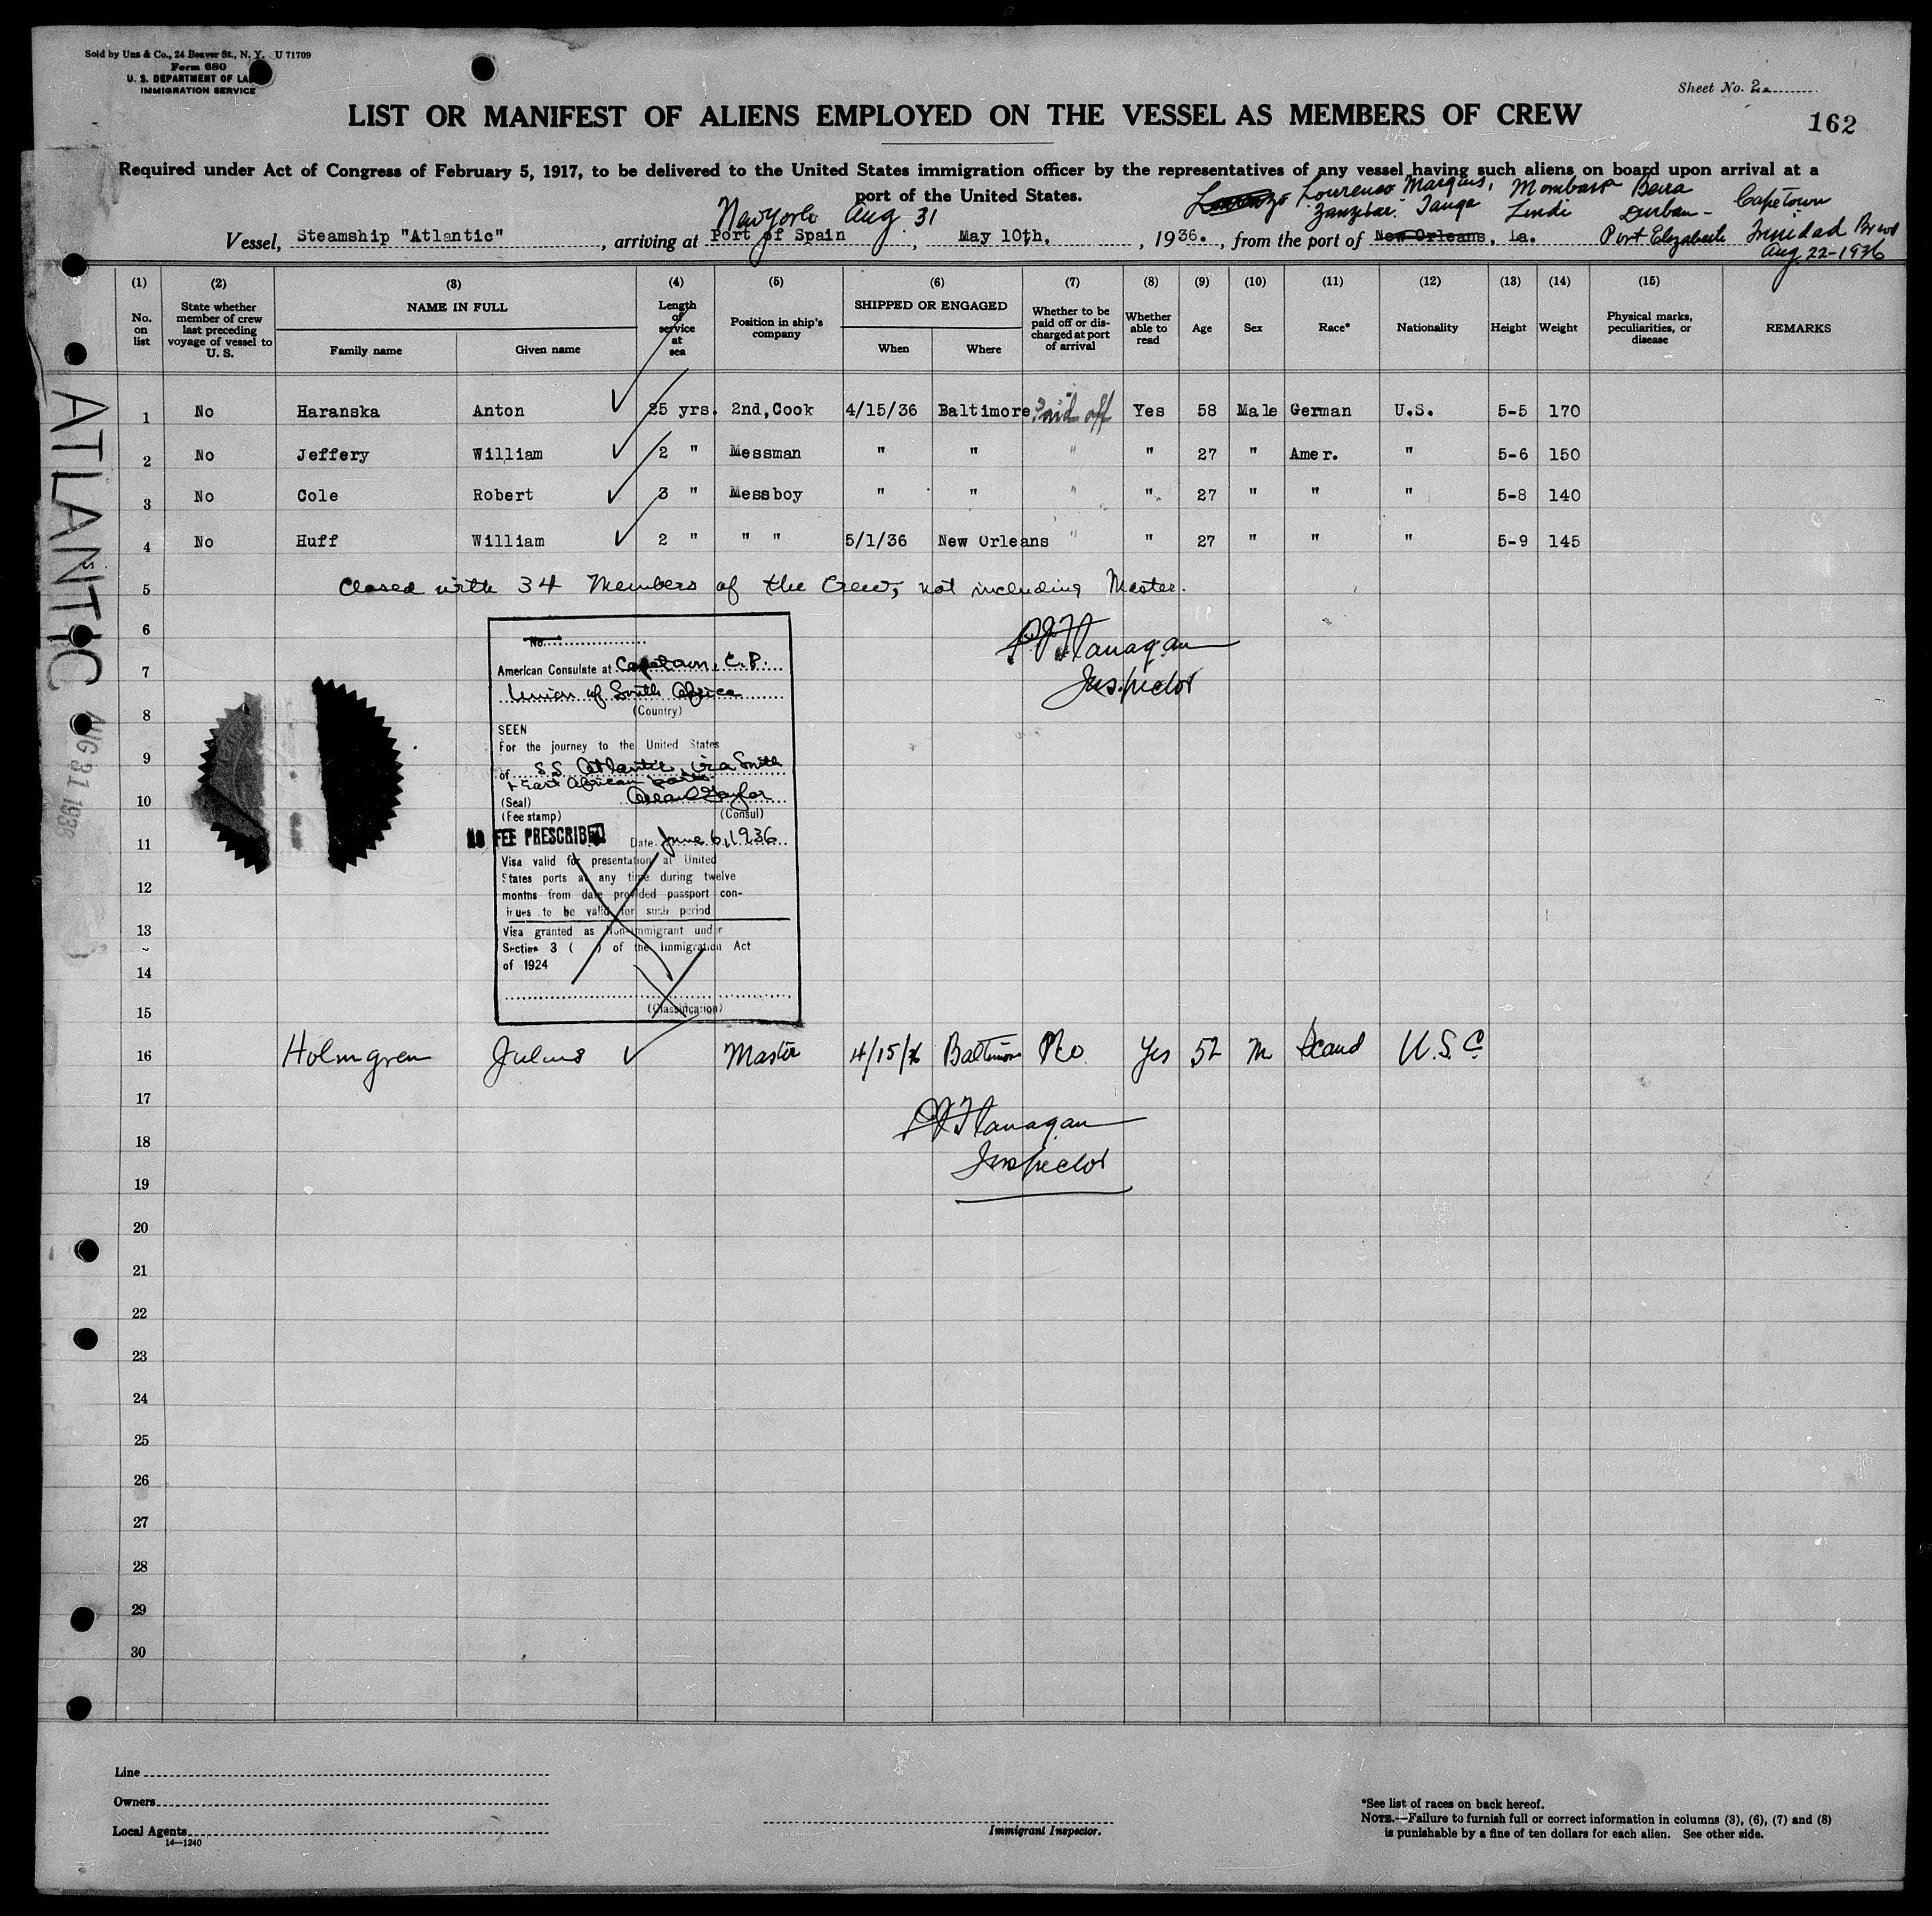 Sold by Uns & Co., 24 Beaver St., N. Y. U 71709
Form 680
U. S. DEPARTMENT OF LA
IMMIGRATION SERVICE
Sheet No. 2
162
LIST OR MANIFEST OF ALIENS EMPLOYED ON THE VESSEL AS MEMBERS OF CREW
Required under Act of Congress of February 5, 1917, to be delivered to the United States immigration officer by the representatives of any vessel having such aliens on board upon arrival at a
port of the United States.
Lourenco Marques, Mombasa Beira Capetown
New York Aug. 31 Zanzibar. Tanga Lindi Durban - Port Elizabeth Trinidad
Aug 22-1936
Vessel, Steamship "Atlantic", arriving at Port of Spain, May 10th, 1936., from the port of New Orleans, La.
(1) (2) (3) (4) (5) (6) (7) (8) (9) (10) (11) (12) (13) (14) (15)
No. on list State whether member of crew last preceding voyage of vessel to U. S. NAME IN FULL Family name Given name Length of service at sea Position in ship's company SHIPPED OR ENGAGED When Where Whether to be paid off or discharged at port of arrival Whether able to read Age Sex Race* Nationality Height Weight Physical marks, peculiarities, or disease REMARKS
1 No Haranska Anton 25 yrs. 2nd, Cook 4/15/36 Baltimore Paid off Yes 58 Male German U.S. 5-5 170
2 No Jeffery William 2 " Messman " " " " 27 " Amer. " 5-6 150
3 No Cole Robert 3 " Messboy " " " " 27 " " " 5-8 140
4 No Huff William 2 " " " 5/1/36 New Orleans " " 27 " " " 5-9 145
5 Closed with 34 Members of the Crew, not including Master.
6
7
8
9
10
11
12
13
14
15
Flanagan
Inspector
No.
American Consulate at Capetown, C.P.
Union of South Africa
(Country)
SEEN
For the journey to the United States
of S.S. Atlantic, via South
+ East African ports
(Seal)
(Fee stamp) (Consul)
NO FEE PRESCRIBED Date June 6, 1936
Visa valid for presentation at United
States ports at any time during twelve
months from date provided passport con-
inues to be valid for such period
Visa granted as Non-immigrant under
Section 3 ( ) of the Immigration Act
of 1924
(Classification)
16 Holmgren Julius Master 4/15/36 Baltimore No Yes 52 M Scand U.S.C.
17
18
19
Flanagan
Inspector
20
21
22
23
24
25
26
27
28
29
30
ATLANTIC
AUG 31 1936
Line
Owners
Local Agents
14—1240
Immigrant Inspector.
*See list of races on back hereof.
NOTE.—Failure to furnish full or correct information in columns (3), (6), (7) and (8)
is punishable by a fine of ten dollars for each alien. See other side.